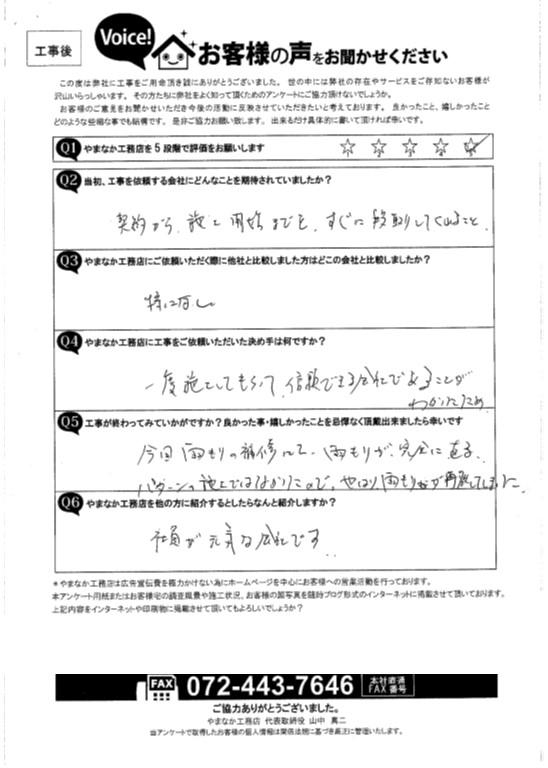 工事後
Voice!
お客様の声をお聞かせください
この度は弊社に工事をご用命頂き誠にありがとうございました。世の中には弊社の存在やサービスをご存知ないお客様が
沢山いらっしゃいます。その方たちに弊社をよく知って頂くためのアンケートにご協力頂けないでしょうか。
お客様のご意見をお聞かせいただき今後の活動に反映させていただきたいと考えております。良かったこと、嬉しかったこと
どのような些細な事でも結構です。是非ご協力お願い致します。出来るだけ具体的に書いて頂ければ幸いです。
Q1 やまなか工務店を5段階で評価をお願いします
1 2 3 4 5
Q2 当初、工事を依頼する会社にどんなことを期待されていましたか?
契約から、施工開始までを、すぐに段取りしてくれること、
Q3 やまなか工務店にご依頼いただく際に他社と比較しました方はどこの会社と比較しましたか?
特になし
Q4 やまなか工務店に工事をご依頼いただいた決め手は何ですか?
一度施工してもらって、信頼できる会社であることが
わかったため
Q5 工事が終わってみていかがですか?良かった事・嬉しかったことを忌憚なく頂戴出来ましたら幸いです
今回雨もりの補修にて、雨もりが完全に直る、
パターンの施工ではなかったので、やはり雨もりが再発してしまった
Q6 やまなか工務店を他の方に紹介するとしたらなんと紹介しますか?
社員が元気な会社です
*やまなか工務店は広告宣伝費を極力かけない為にホームページを中心にお客様への営業活動を行っております。
本アンケート用紙またはお客様宅の調査風景や施工状況、お客様の顔写真を随時ブログ形式のインターネットに掲載させて頂いております。
上記内容をインターネットや印刷物に掲載させて頂いてもよろしいでしょうか?
FAX 072-443-7646 本社直通
FAX番号
ご協力ありがとうございました。
やまなか工務店 代表取締役 山中 真二
当アンケートで取得したお客様の個人情報は関係法規に基づき厳正に管理いたします。